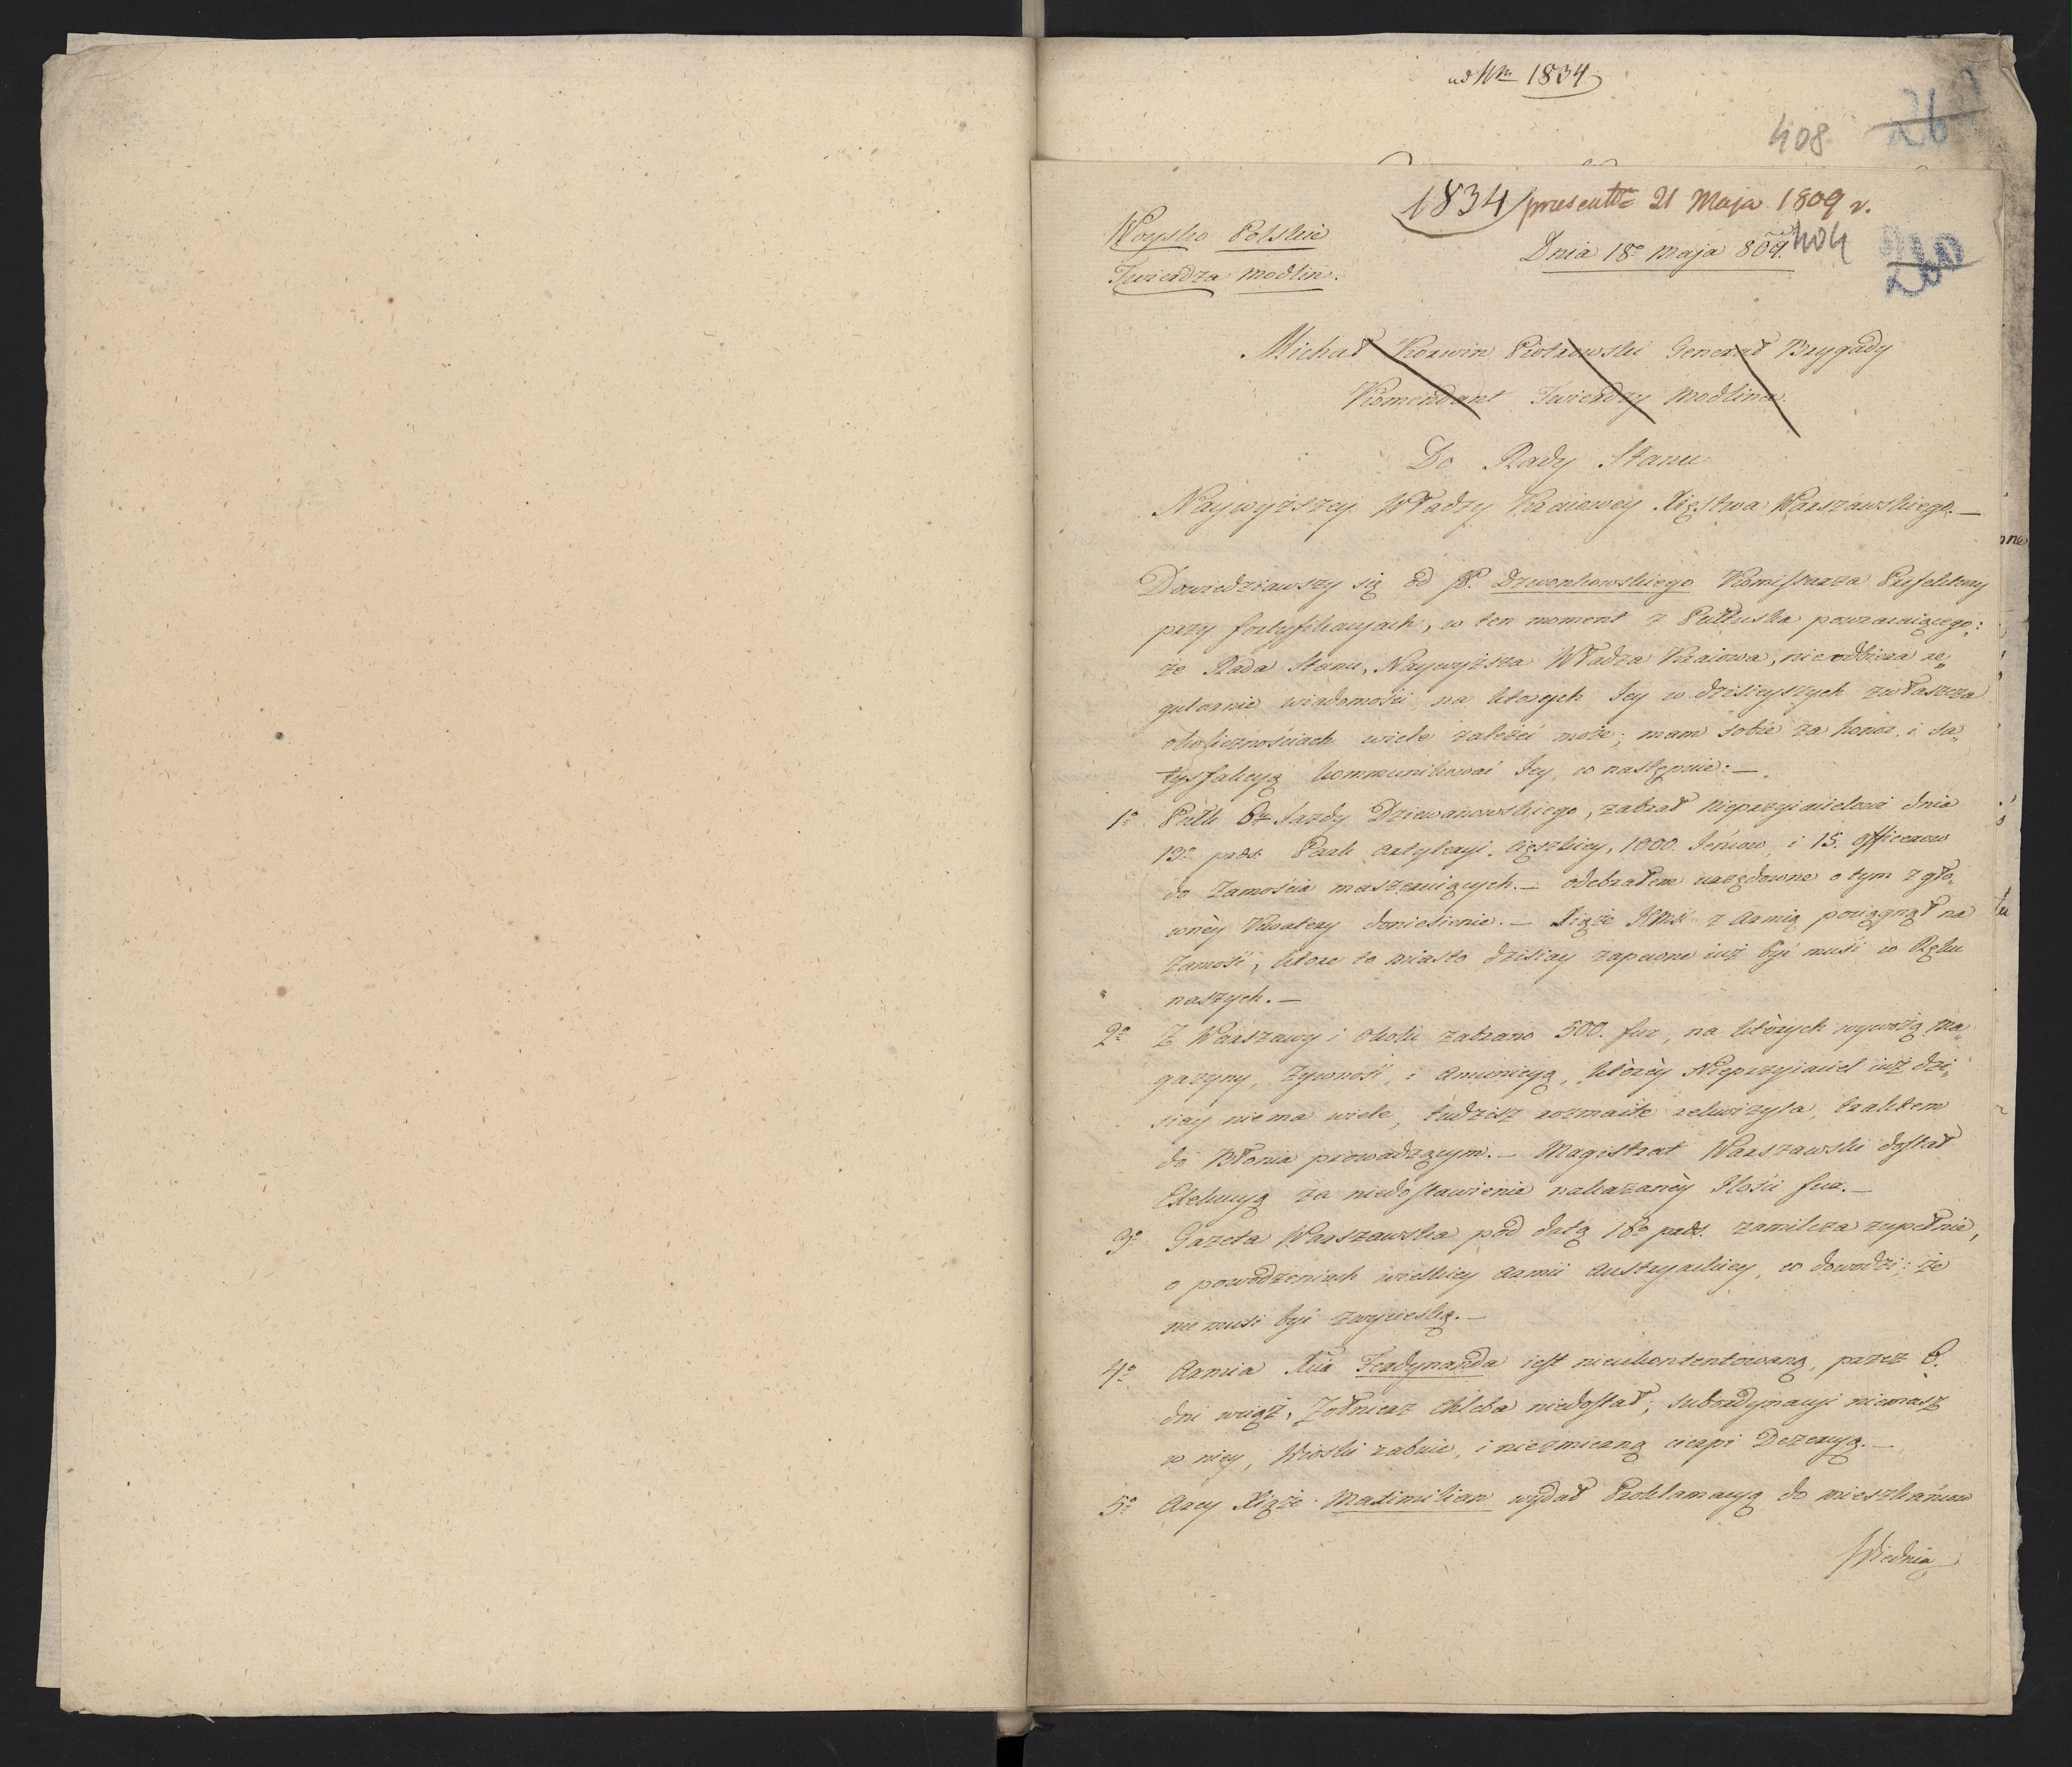 ad Nrm 1834
408 26
1834 presentm 21 Maja 1809 r.
Woysko Polskie
Dnia 18o Maja 809. 404 260
Twierdza Modlin.
Michał Korwin Piotrowski Generał Brygady
Komendant Twierdzy Modlina.
Do Rady Stanu
Naywyższey Władzy Kraiowey Xięstwa Warszawskiego. —
Dowiedziawszy się od JP. Dzwonkowskiego Komissarza Prefektury
przy fortyfikacyach, w ten moment z Pułtuska powracaiącego:
że Rada Stanu, Naywyższa Władza Kraiowa, nieodbiera re„
gularnie wiadomości na ktorych Jey w dzisieyszych zwłaszcza
okolicznościach wiele zależeć może; mam sobie za honor i sa„
tysfakcyą kommunikować Jey co następuie: —
1o Pułk 6ty Jazdy Dziewanowskiego, zabrał Nieprzyiacielowi dnia
13o pds. Park Artyleryi ciężkiey, 1000 Jeńcow, i 15. officerow
do Zamościa maszeruiących. — odebrałem urzędowne o tym z gło„
wnéy Kwatery doniesienie. — Xiąże JMść z Armią pociągnął na
Zamość, ktore to miasto dzisiay zapewne iuż być musi w Ręku
naszych. —
2o Z Warszawy i okolic zabrano 500. fur, na których wywożą Ma„
gazyny, żywność, i Amunicyą, któréy Nieprzyiaciel iuż dzi„
siay nie ma wiele, tudzież rozmaite rekwizyta, traktem
do Błonia prowadzącym. — Magistrat Warszawski dostał
Exekucyą za niedostawienie nakazanéy Ilości fur. —
3o Gazeta Warszawska pod datą 16o pds. zamilcza zupełnie,
o powodzeniach wielkiey Armii Austryackiey, co dowodzi; że
nie musi być zwycieską. —
4o Armia Xcia Ferdynanda iest nieukontentowaną, przez 6.
dni wciąż, Żołnierz chleba niedostał; subordynacyi niemasz
w niey, Wioski rabuie, i niezmierną cierpi Dezercyą. —
5o Arcy Xiąże Maximilian wydał Proklamacyą do mieszkańcow
Wiednia